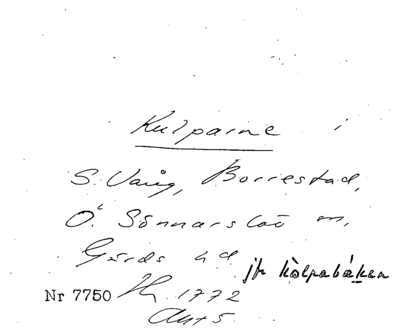 Kulparne i
S. Vång, Borrestad,
Ö. Sönnarslöv m,
Gärds hd
jfr kòlpabákan
Nr 7750 1772
Akt 5